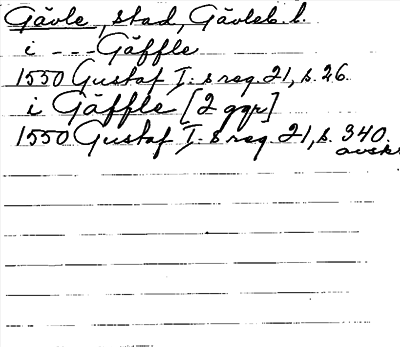 Gävle, stad, Gävleb. l.
i - - - Gäffle
1550 Gustaf I:s reg. 21, s. 26.
i Gäffle [2 ggr]
1550 Gustaf I:s reg. 21, s. 340.
avskr